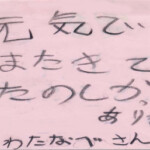 元気でい
またきて
たのしかっ
あり
わたなべさん